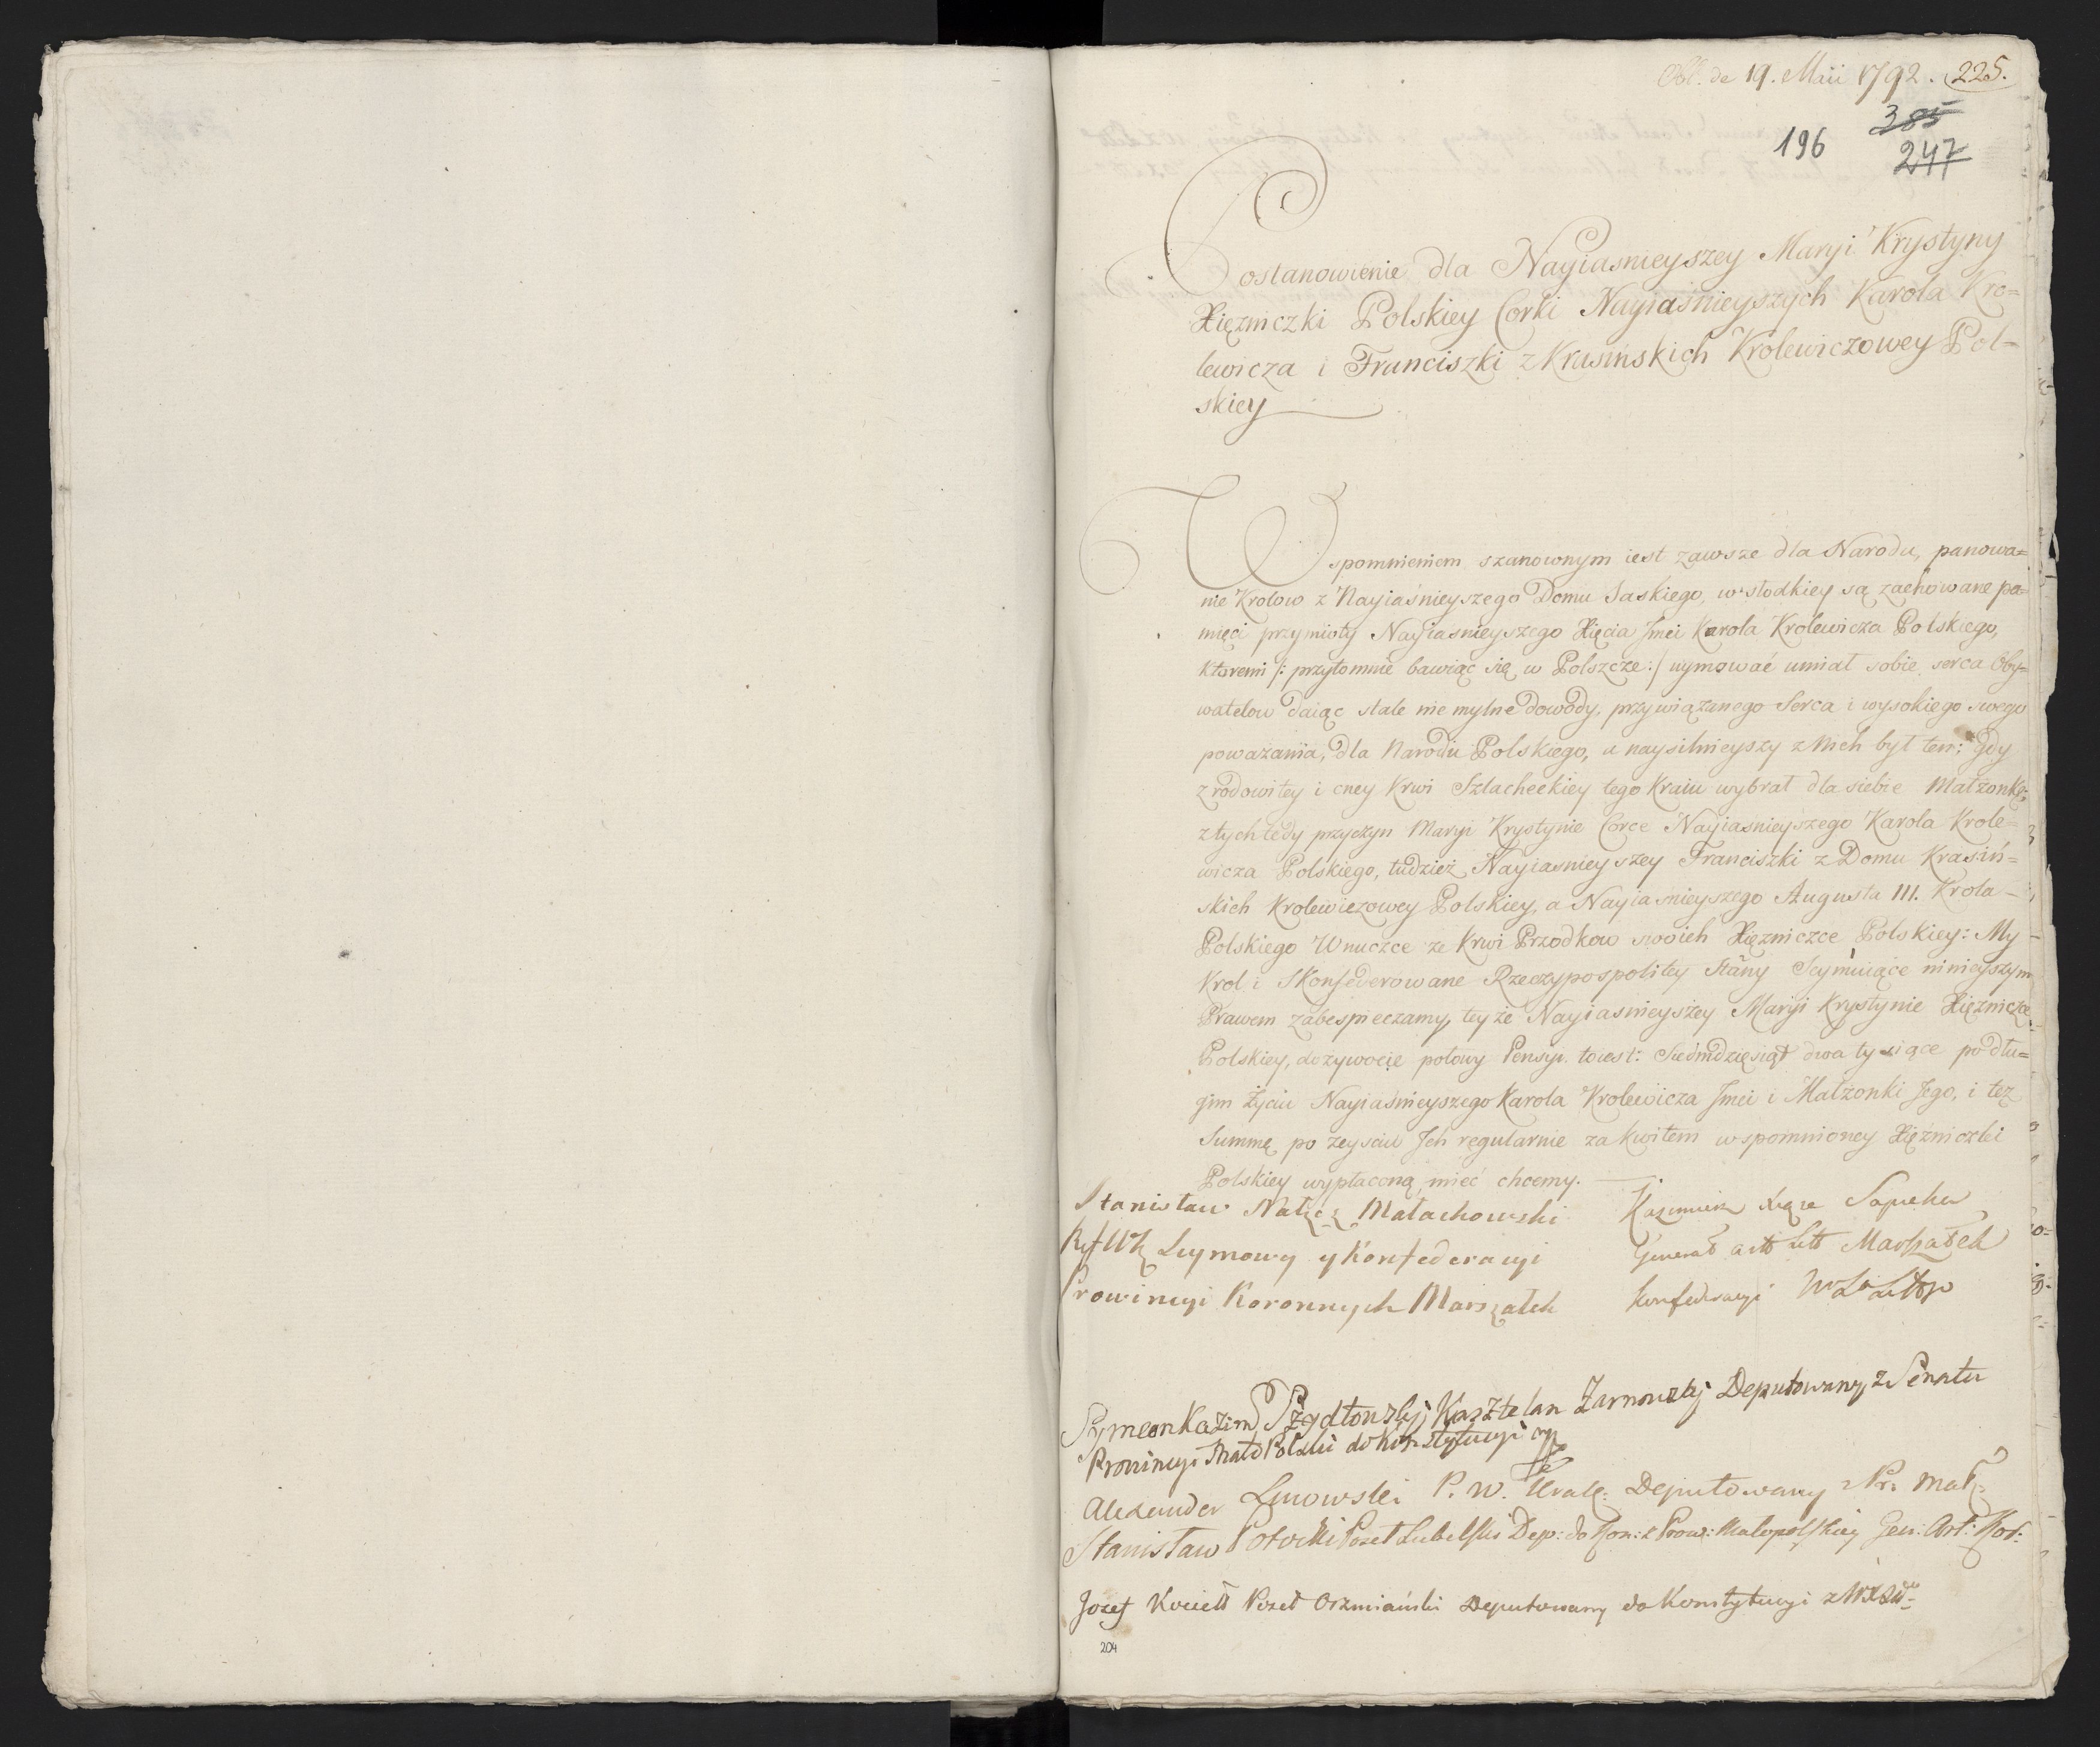 Obl. de 19. Maii 1792. 225.
385
196 247
Postanowienie dla Nayiasnieyszey Maryi Krystyny
Xięzniczki Polskiey Corki Nayiaśnieyszych Karola Kro=
lewicza i Franciszki z Krasińskich Krolewiczowey Pol=
skiey
Wspomnieniem szanownym iest zawsze dla Narodu, panowa=
nie Krolow z Nayiaśnieyszego Domu Saskiego, w słodkiey są zachowane pa=
mięci przymioty Nayiasnieyszego Xięcia Jmci Karola Krolewicza Polskiego,
ktoremi /: przytomnie bawiąc się w Polszcze :/ uymować umiał sobie serca Oby=
watelow daiąc stale nie mylne dowody, przywiązanego Serca i wysokiego swego
poważania, dla Narodu Polskiego, a naysilnieyszy z nich był ten: Gdy
z rodowitey i cney Krwi Szlacheckiey tego Kraiu wybrał dla siebie Małżonkę;
z tych tedy przyczyn Maryi Krystynie Corce Nayiasnieyszego Karola Krole=
wicza Polskiego, tudzież Nayiasnieyszey Franciszki z Domu Krasiń=
skich Krolewiczowey Polskiey, a Nayiasnieyszego Augusta III. Krola
Polskiego Wnuczce ze Krwi Przodkow swoich Xięzniczce Polskiey: My
Krol i Skonfederowane Rzeczypospolitey Stany Seymuiące ninieyszym
Prawem zabespieczamy, teyże Nayiasnieyszey Maryi Krystynie Xięzniczce
Polskiey, dożywocie połowy Pensyi. toiest: Siedmdziesiąt dwa tysiące po dłu=
gim życiu Nayiaśnieyszego Karola Krolewicza Jmci i Małżonki Jego, i tez
Summę po zeysciu Ich regularnie za kwitem wspomnioney Xięzniczki
Polskiey wypłaconą, mieć chcemy.
Stanisław Nałęcz Małachowski
Ref WK Seymowy y Konfederacyi
Prowincyi Koronnych Marszałek
Kazimierz Xiąże Sapieha
Generał art Litt Marszałek
Konfederacyi
Symeon Kazim Szydłowskj Kasztelan Żarnowskj Deputowany z Senatu
Prowincyi Mało Polski do Konstytucyi mp
Alexander Linowski P. W. Krak: Deputowany z Pr. Mał:
Stanisław Potocki Poseł Lubelski Dep: do Kon: z Prow: Małopolskiey Gen: Art: Kor:
Jozef Kociełł Poseł Oszmiański Deputowany do Konstytucyi z
204